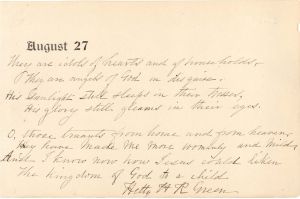 August 27
There are idols of hearts and of households,
They are angels of God in disguise.
His sunlight still sleeps in their tresses,
His glory still gleams in their eyes.
O, those truants from home and from heaven,
They have made me more womanly and mild,
And I know now how Jesus could liken
The kingdom of God to a child
Hetty H R Green